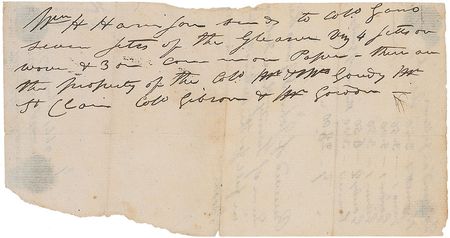 Wm H Harrison sends to Colo. Gano
seven setts of the Gleaner viz 4 setts on
wove & 3 on common Paper - these are
the property of the Colo. Mr & Mrs Goudy Mr
St Clair Colo. Gibson & Mr Gordon